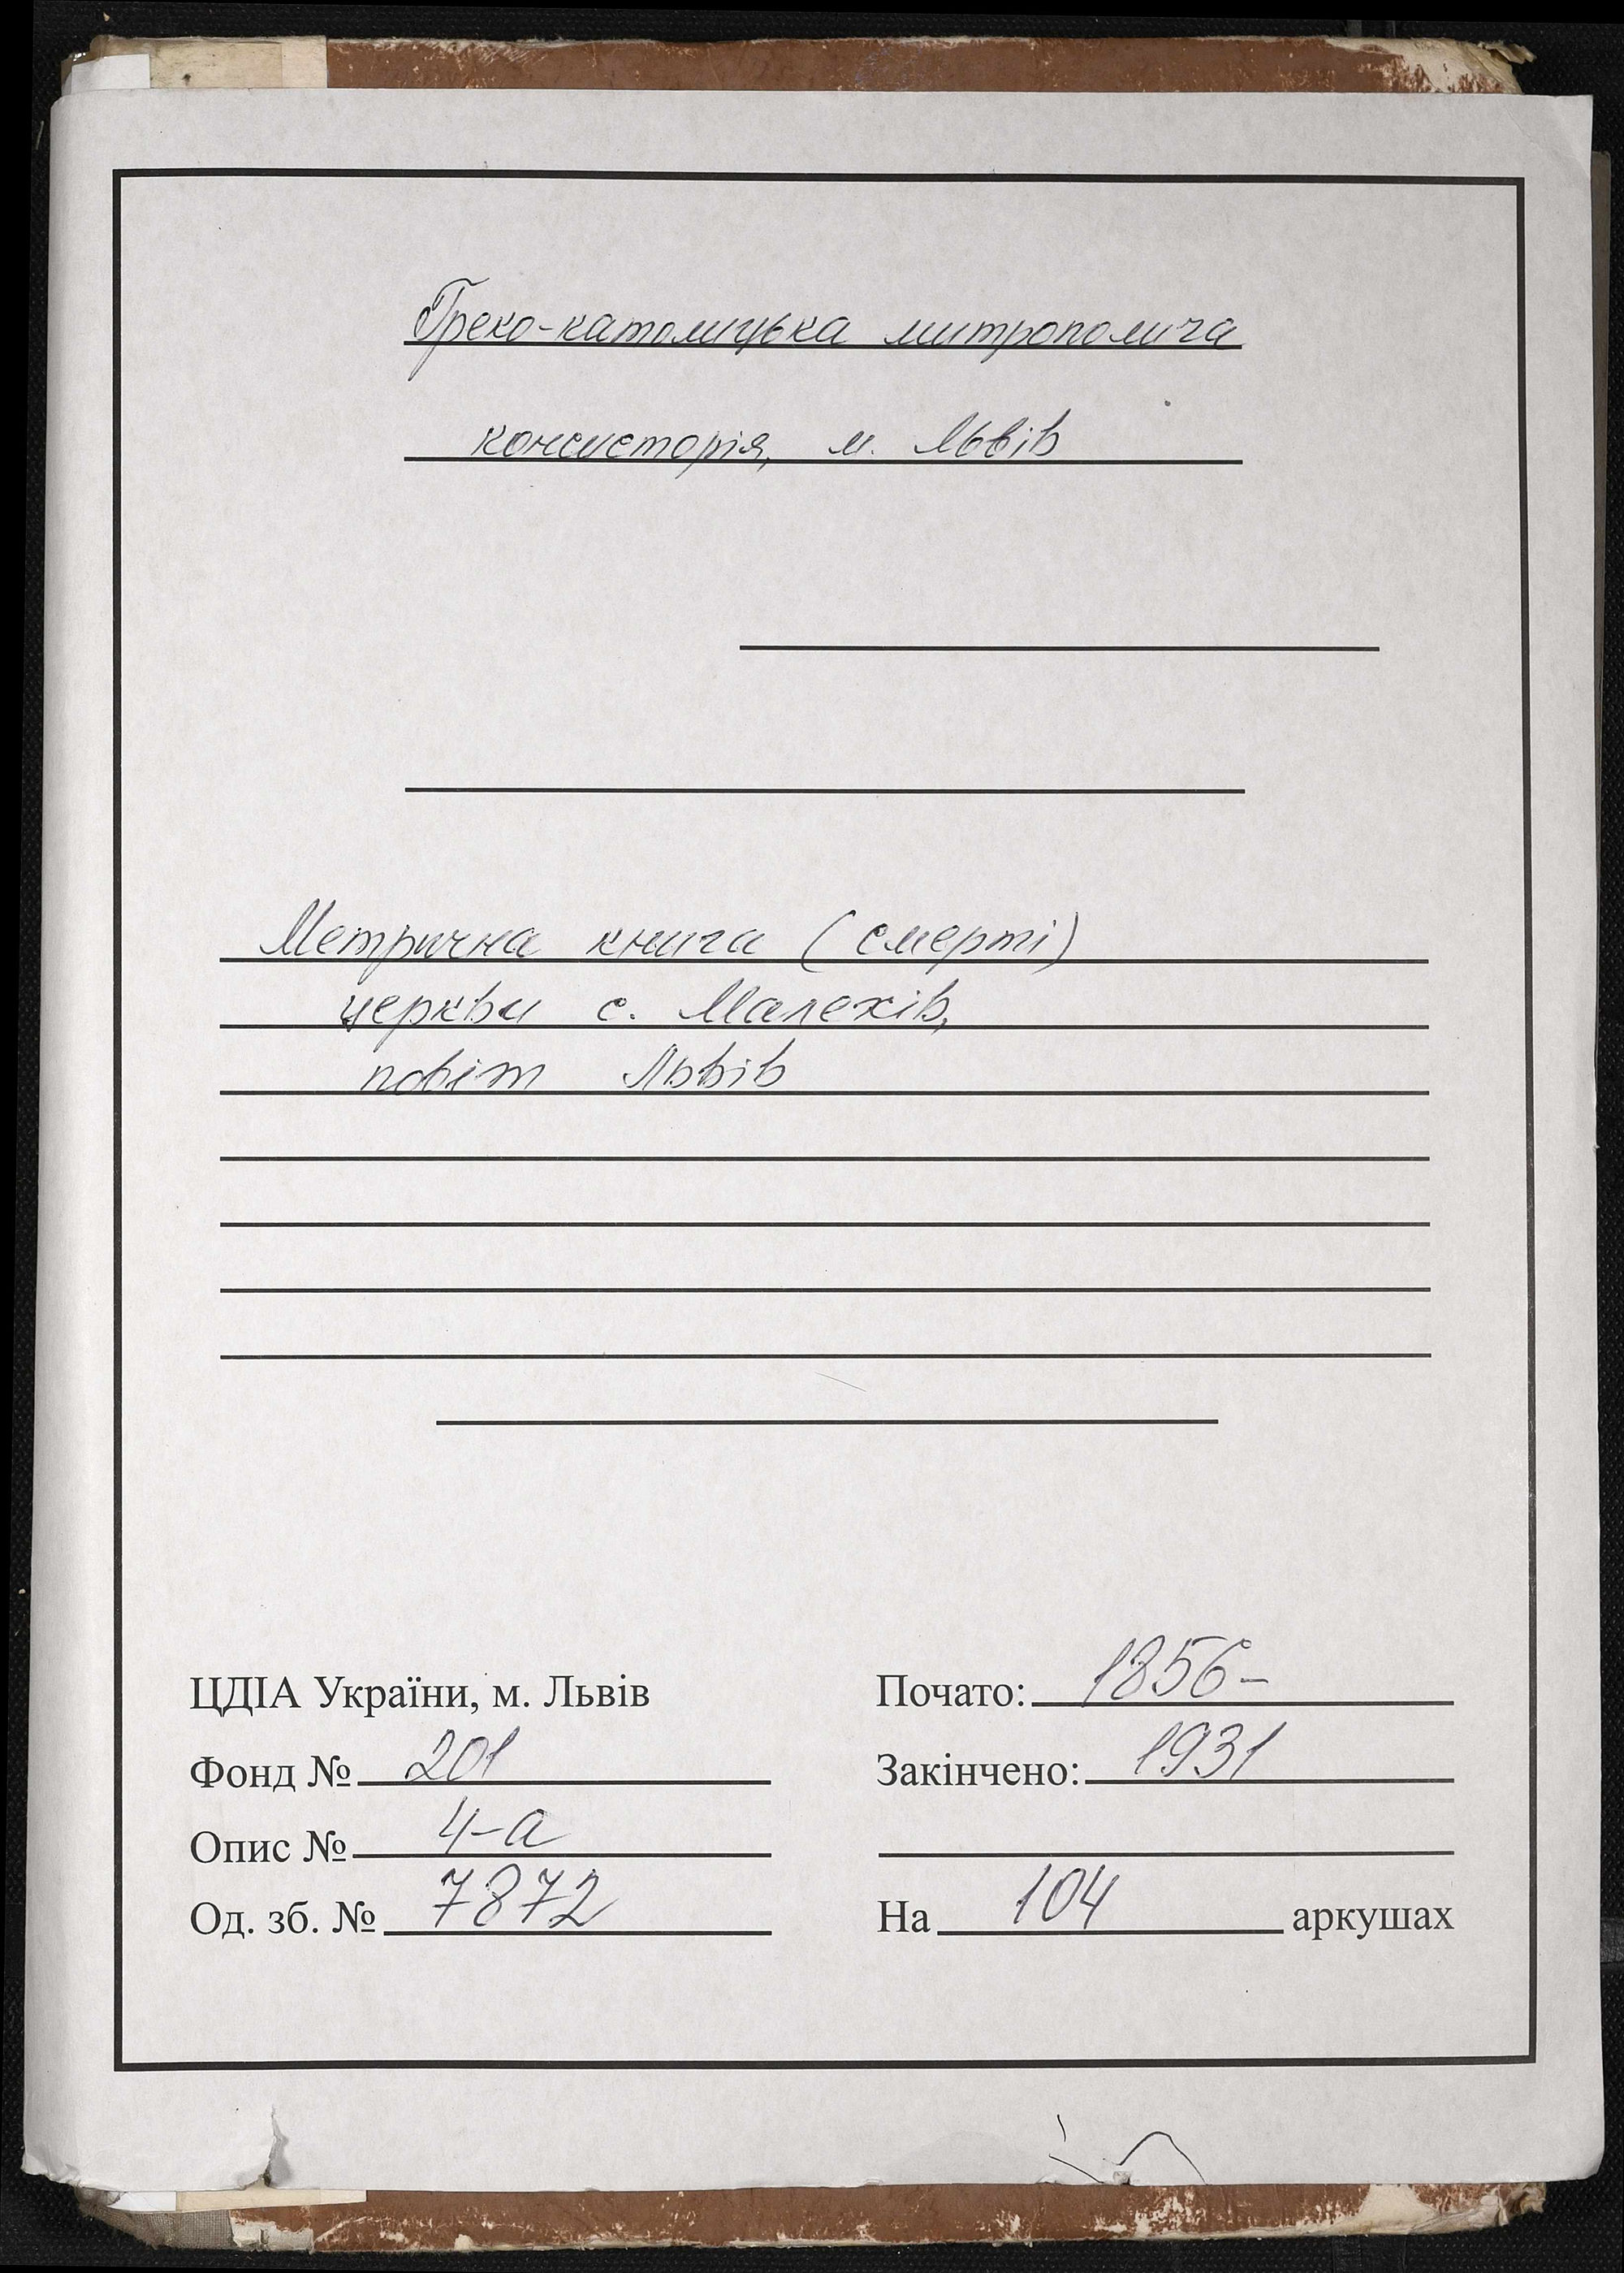 Греко-католицька митрополича
консисторія, м. Львів
Метрична книга (смерті)
церкви с. Малехів,
повіт Львів
ЦДІА України, м. Львів
Почато: 1856-
Фонд № 201
Закінчено: 1931
Опис № 4-а
Од. зб. № 7872
На 104 аркушах